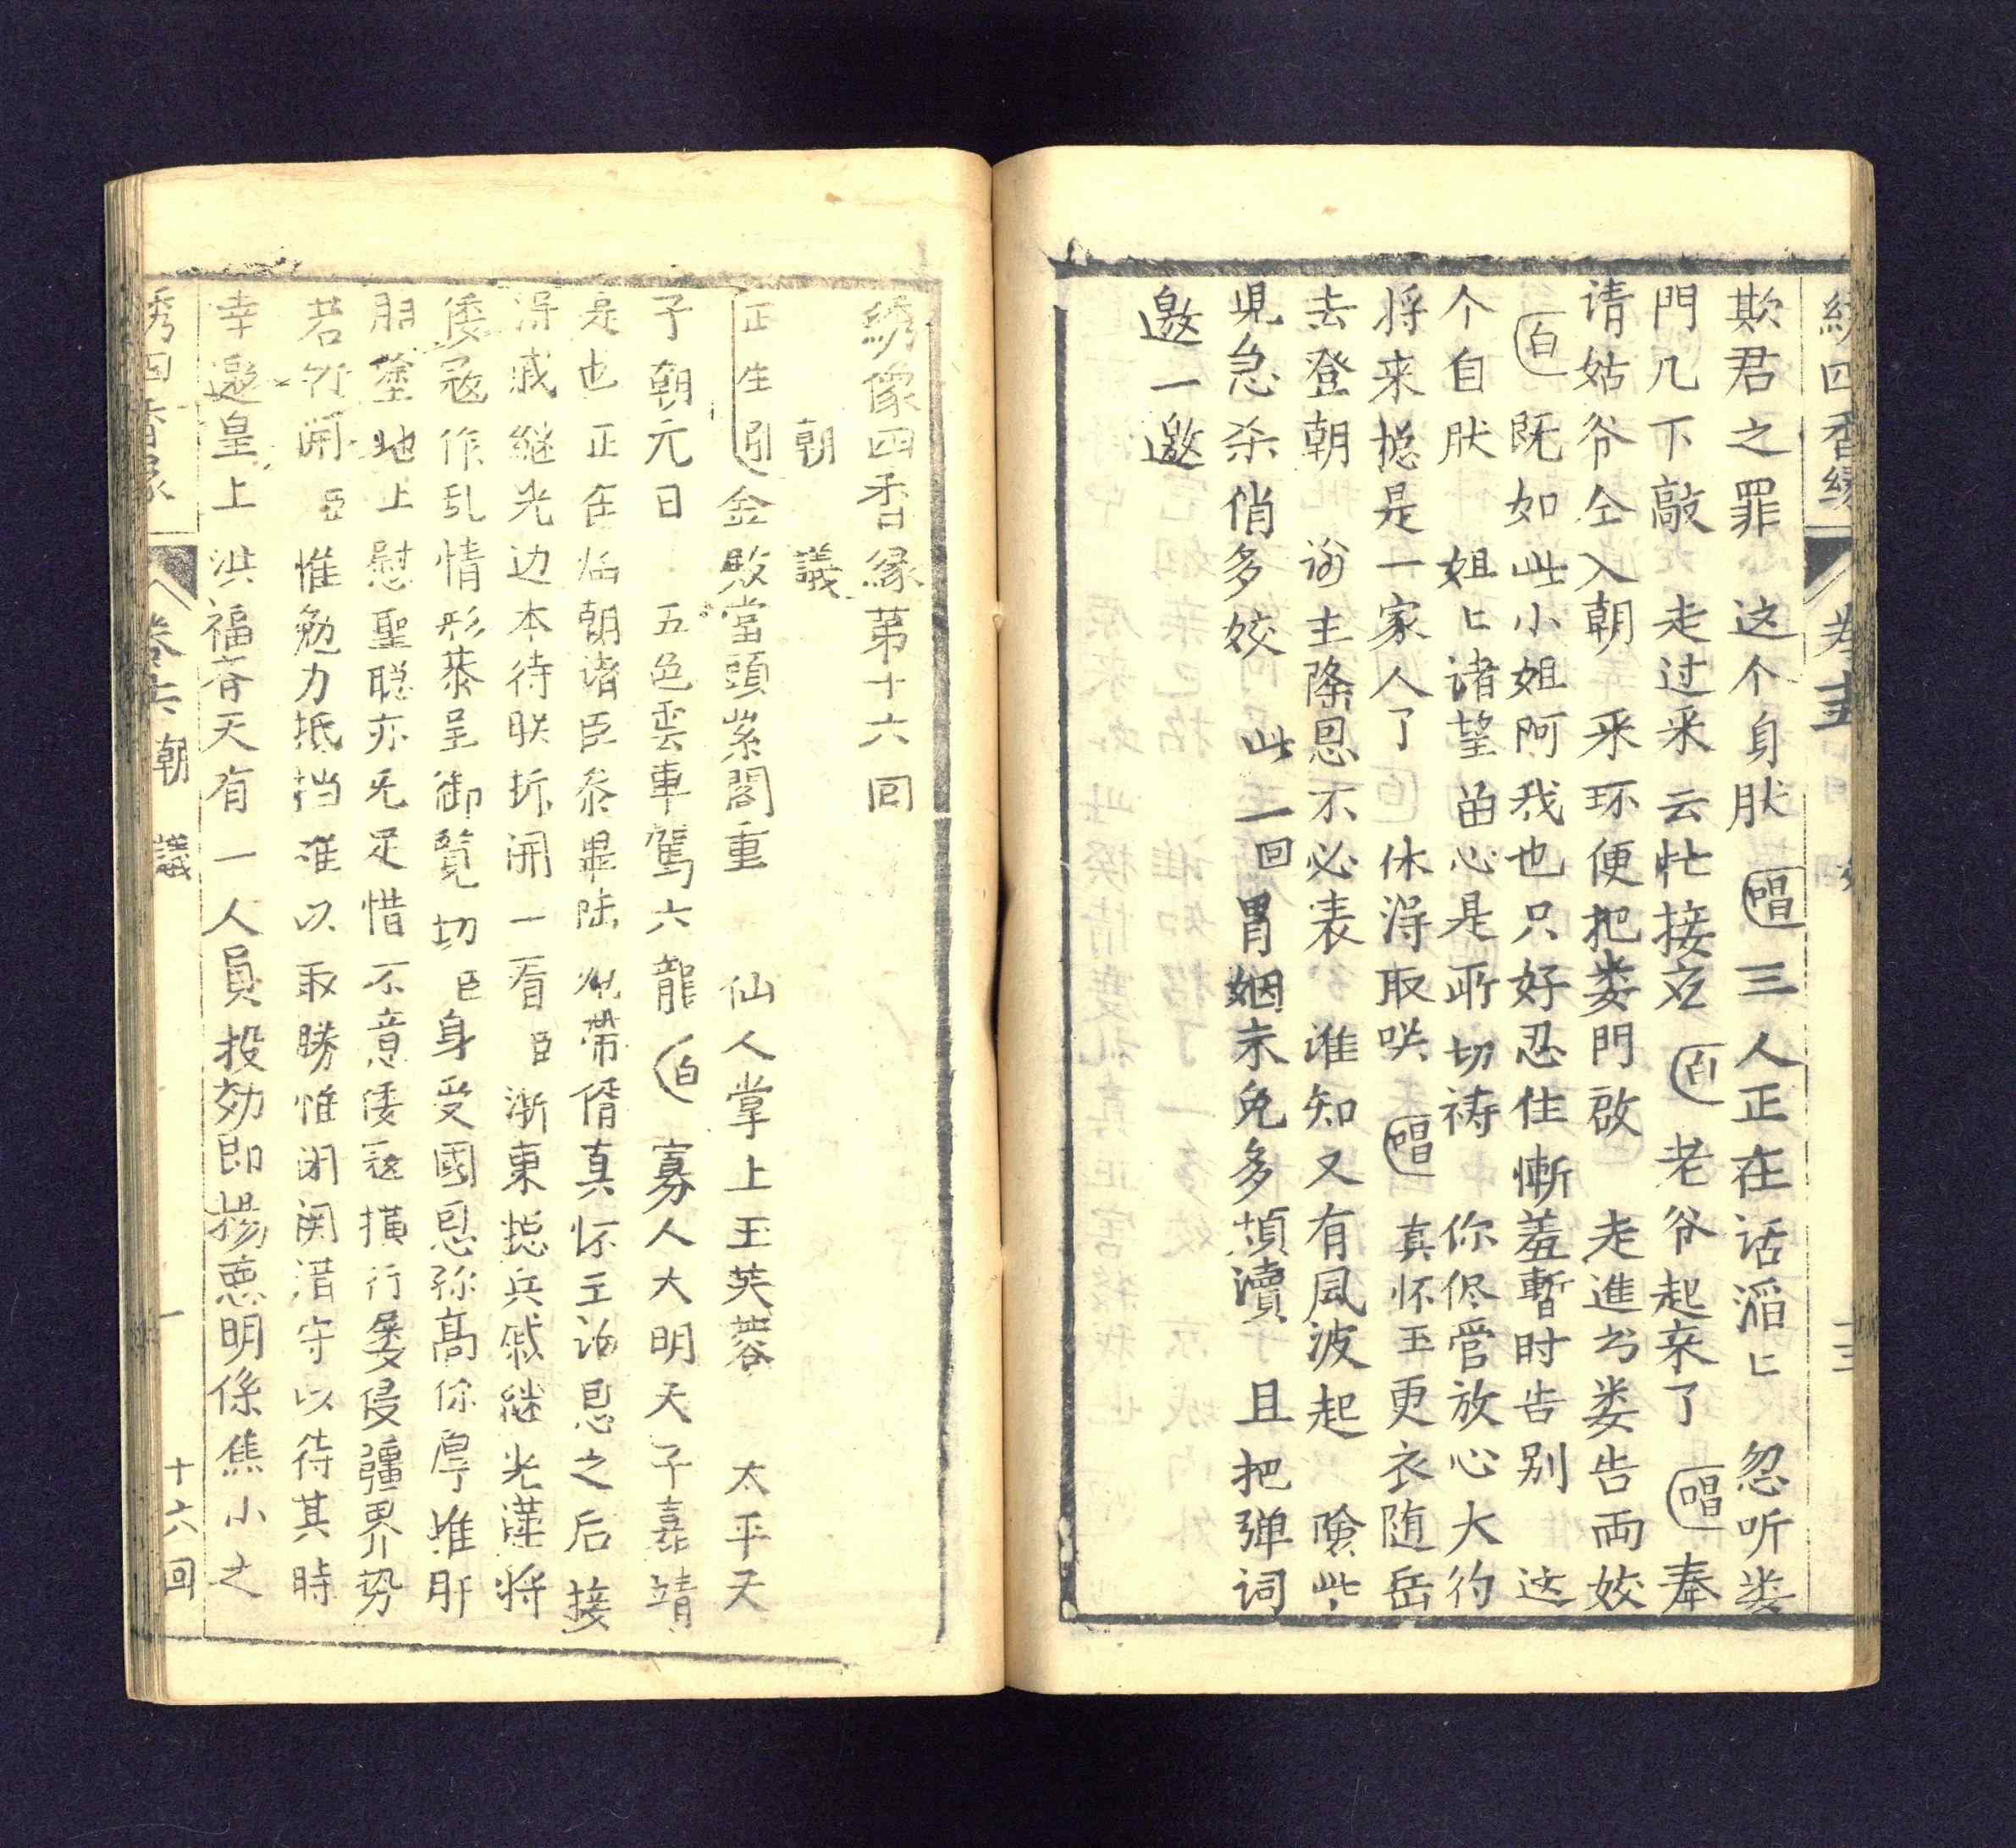 绣四香緣 卷十五 十三
欺君之罪 这个身肰 唱 三人正在话滔匕 忽听娄
門几下敲 走过来云忙接应 白 老爷起来了 唱 奉
请姑爷仝入朝 采环便把娄門啟 老進書娄告両姣
白 既如此小姐阿我也只好忍住慚羞暫时告别 这
个自肰 姐匕诸望留心是所切祷 你侭管放心大约
将来搃是一家人了 休淂取咲 唱 真怀玉更衣随岳
去登朝 谢主隆恩不必表 谁知又有風波起 險些
児急杀俏多姣 此一回 冒姻未免多頍瀆 且把弹词
邀一邀
綉像四香緣第十六回
朝 議
正生引 金殿當頭紫閣重 仙人掌上玉芙蓉 太平天
子朝元日 五色雲車駕六龍 白 寡人大明天子嘉靖
是也正在临朝诸臣叅畢陆 冠帶偦真怀玉谢恩之后接
淂戚継光边本待朕拆開一看 臣 浙東搃兵戚継光謹将
倭寇作乱情形恭呈御覽切 臣 身受國恩弥高弥厚雖肝
腦塗地上慰聖聪亦旡足惜不意倭寇横行屡侵疆界势
若竹開 臣 惟勉力抵挡难以取勝惟闭関潜守以待其時
幸邀皇上洪福齐天有一人員投効即楊惠明係焦小之
绣四香緣 卷十六 朝議 一 十六回